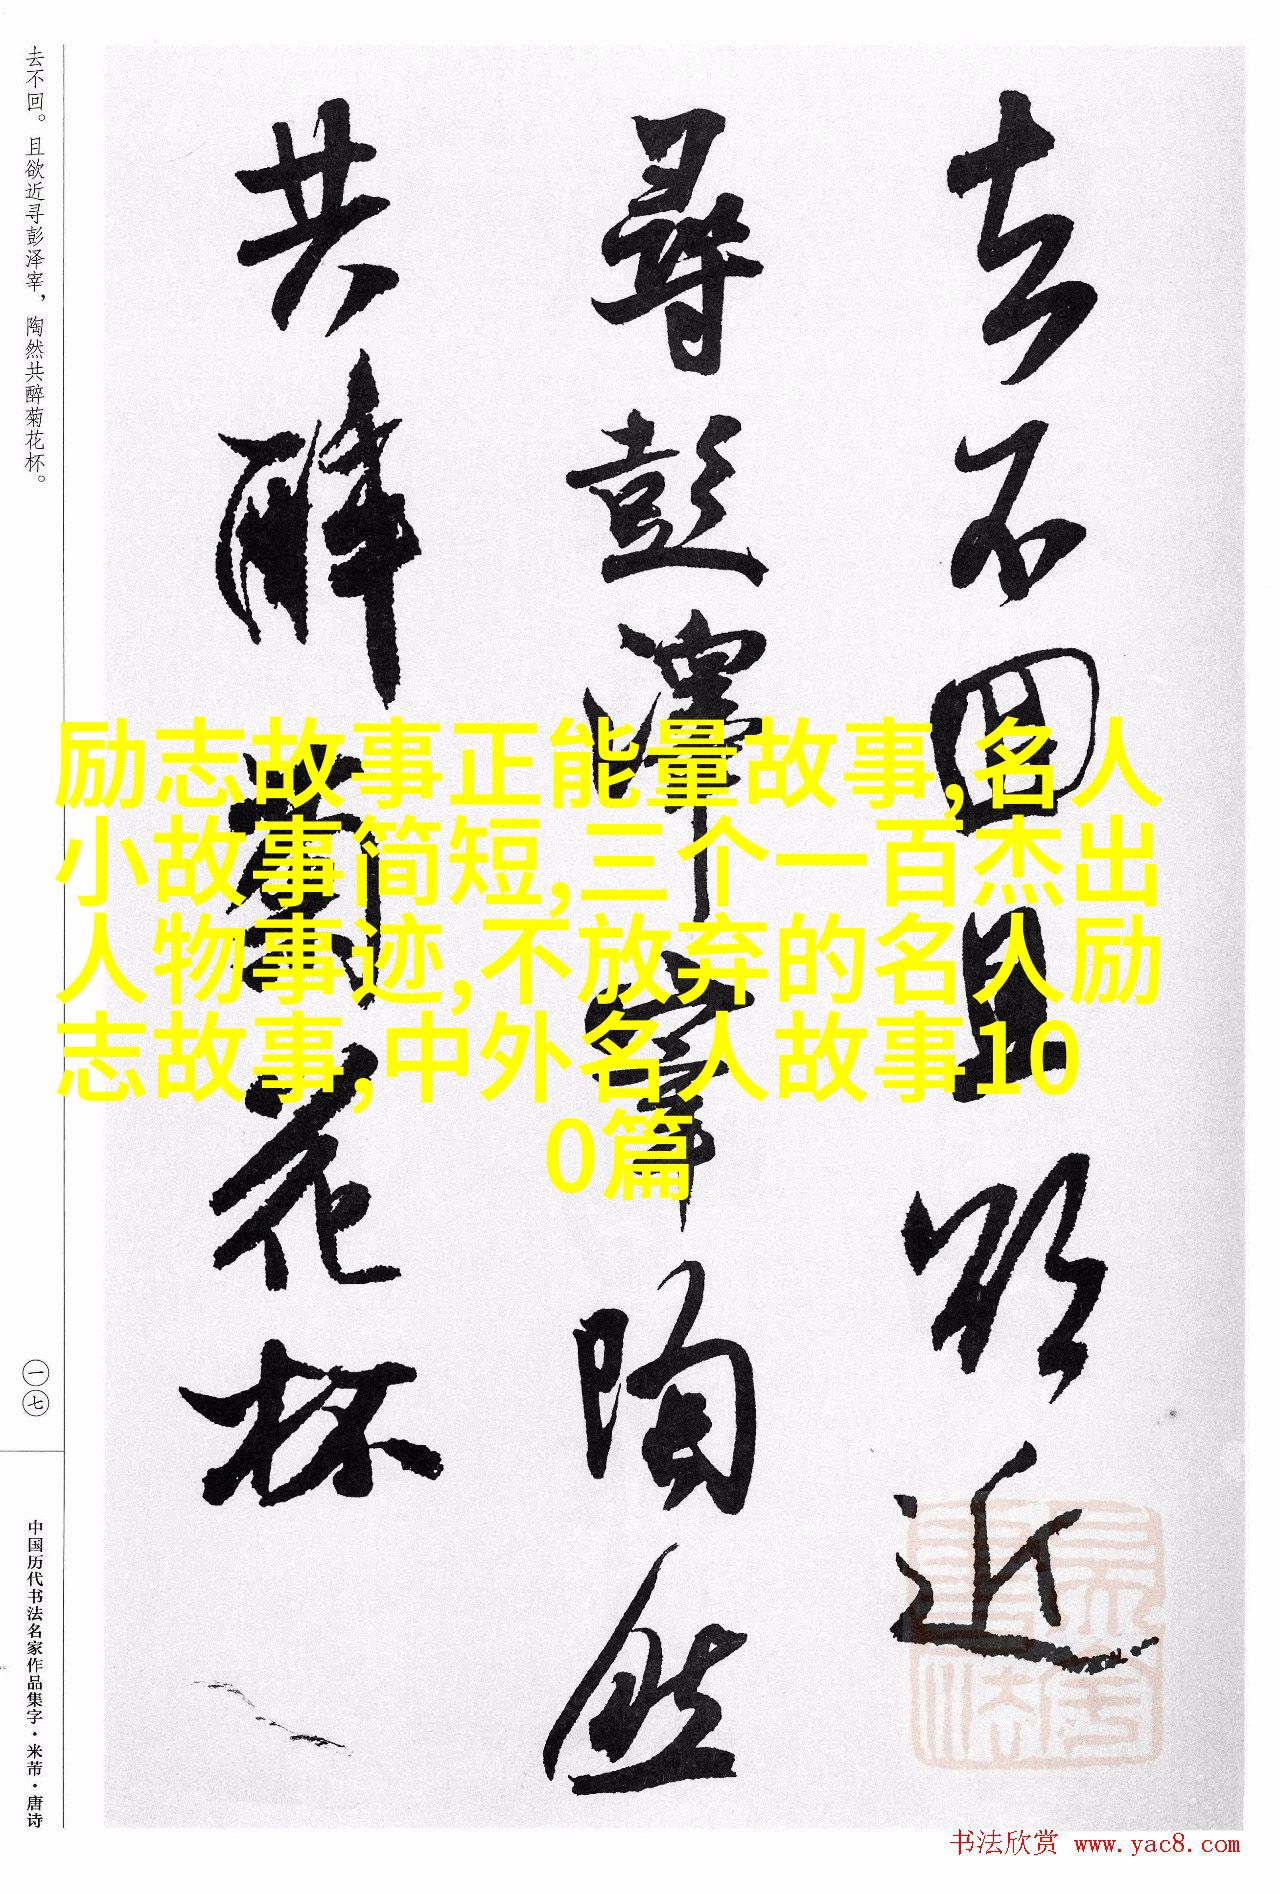 去不回且欲近
尋彭澤宰陶然
共醉菊花杯
去不回。且欲近寻彭泽宰，陶然共醉菊花杯。
一七
中国历代书法名家作品集字·米芾·唐诗
励志故事正能量故事,名人
小故事简短,三个一百杰出
人物事迹,不放弃的名人励
志故事,中外名人故事10
0篇
书法欣赏 www.yac8.com